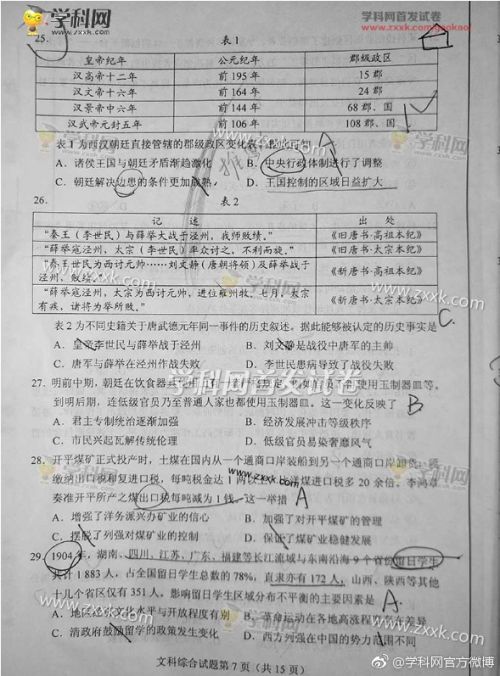 学科网首发试卷
www.zxxk.com/gaokao
25. 表1
皇帝纪年 公元纪年 郡级政区
汉高帝十二年 前195年 15郡
汉文帝十六年 前164年 24郡
汉景帝中六年 前144年 68郡、国
汉武帝元封五年 前106年 108郡、国
表1为西汉朝廷直接管辖的郡级政区变化表。据此可知
A. 诸侯王国与朝廷矛盾渐趋激化 B. 中央行政体制进行了调整
C. 朝廷解决边患的条件更加成熟 D. 王国控制的区域日益扩大
A
26. 表2
记述 出处
“秦王（李世民）与薛举大战于泾州，我师败绩。” 《旧唐书·高祖本纪》
“薛举寇泾州，太宗（李世民）率众讨之，不利而旋。” 《旧唐书·太宗本纪》
“秦王世民为西讨元帅……刘文静（唐朝将领）及薛举战于
泾州，败绩。” 《新唐书·高祖本纪》
“薛举寇泾州，太宗为西讨元帅，进位雍州牧。七月，太宗
有疾，诸将为举所败。” 《新唐书·太宗本纪》
表2为不同史籍关于唐武德元年同一事件的历史叙述。据此能够被认定的历史事实是
C.
A. 皇帝李世民与薛举战于泾州 B. 刘文静是战役中唐军的主帅
C. 唐军与薛举在泾州作战失败 D. 李世民患病导致了战役失败
27. 明前中期，朝廷在饮食器 使用玉制器皿等。
到明后期，连低级官员乃至普通人家也都使用玉制器皿。这一变化反映了
B
A. 君主专制统治逐渐加强 B. 经济发展冲击等级秩序
C. 市民兴起瓦解传统伦理 D. 低级官员易染奢靡风气
28. 开平煤矿正式投产时，土煤在国内从一个通商口岸装船到另一个通商口岸卸货，须
缴纳出口税和复进口税，每吨税金达1 洋煤进口税多20余倍。李鸿章
奏准开平所产之煤出口税每吨减为1钱。这一举措
A
A. 增强了洋务派兴办矿业的信心 B. 加强了对开平煤矿的管理
C. 摆脱了列强对煤矿业的控制 D. 保证了煤矿业稳健发展
29. 1904年，湖南、四川、江苏、广东、福建等长江流域与东南沿海9个省份留日学生
共计1 883人，占全国留日学生总数的78%，直隶亦有172人，山西、陕西等其他
十几个省区仅有351人。影响留日学生区域分布不平衡的主要因素是
A.
A. 地区经济文化水平与开放程度有别 B. 革命运动在各地高涨程度存在差异
C. 清政府鼓励留学的政策发生变化 D. 西方列强在中国的势力范围不同
文科综合试题第7页（共15页）
@学科网官方微博